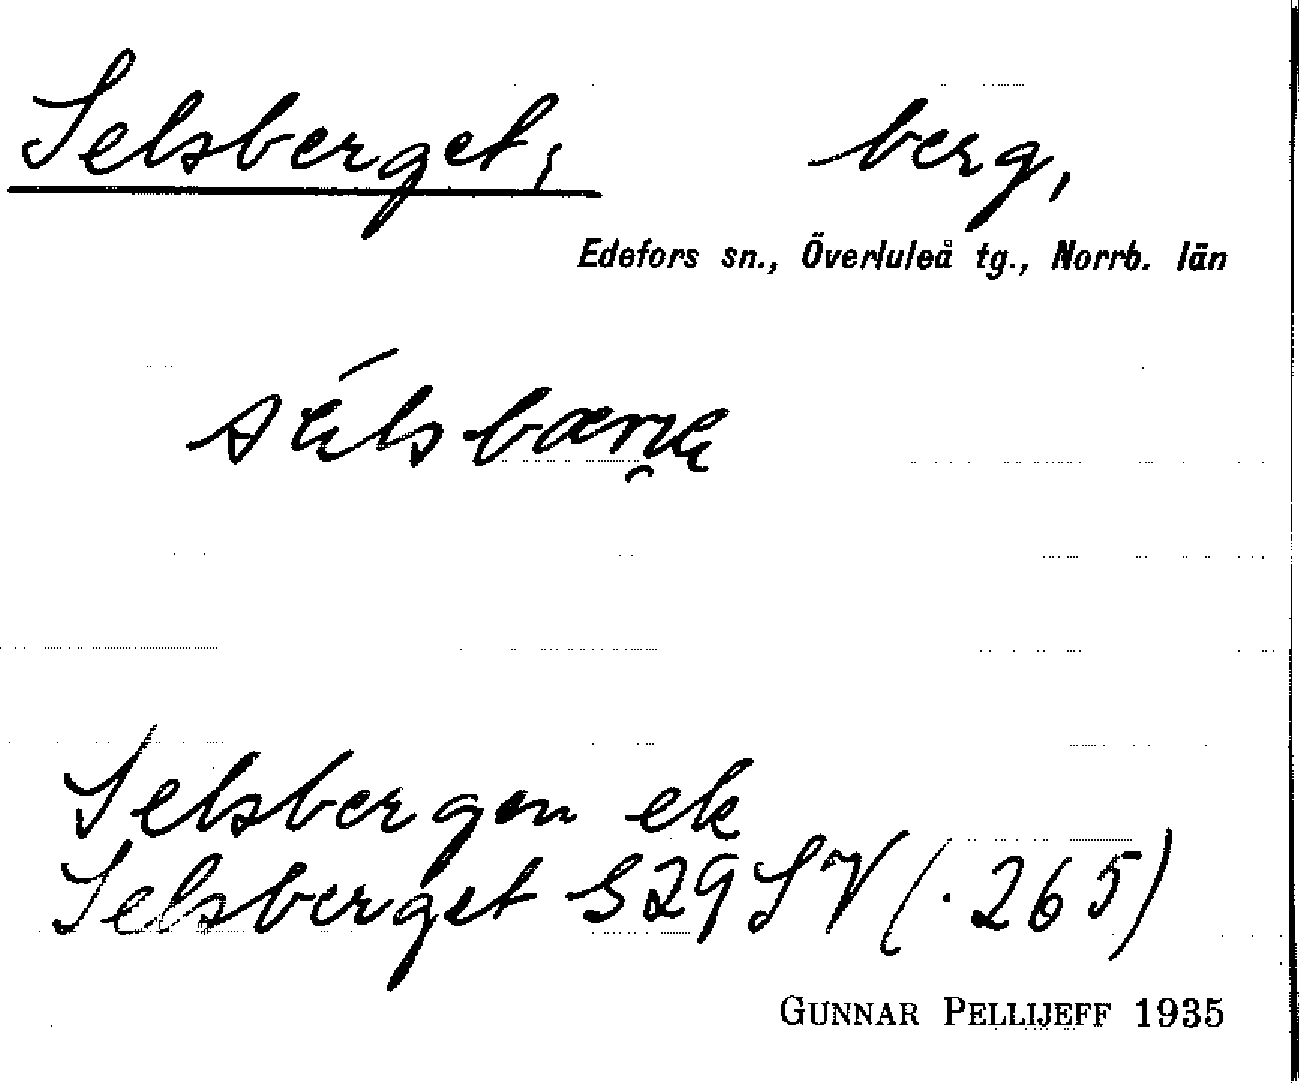 Selsberget; berg,
Edefors sn., Överluleå tg., Norrb. län
Selsbergen ek
Selsberget S29SV (·265)
GUNNAR PELLIJEFF 1935